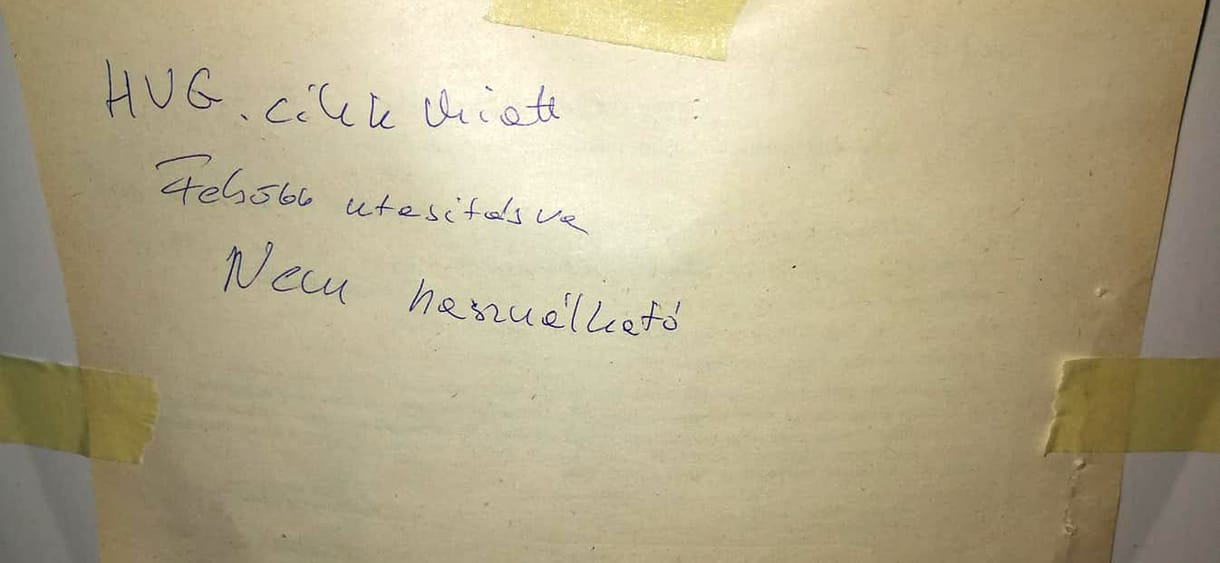 HVG. cikk miatt
Felsőbb utasításra
Nem használható